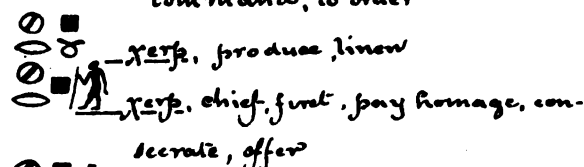 to order
χerp, produce, linen
χerp, chief, first, pay homage, con-
secrate, offer